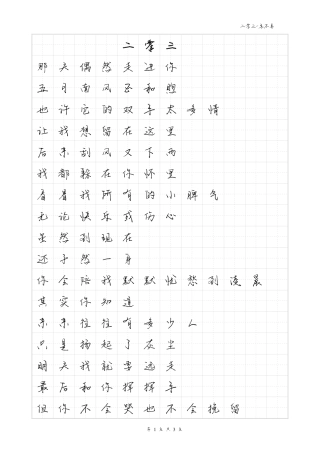 二零三·朱不易
二零三
那天偶然走进你
五月南风正和煦
也许它的双手太多情
让我想留在这里
后来刮风又下雨
我都躲在你怀里
看着我所有的小脾气
无论快乐或伤心
虽然到现在
还孑然一身
你会陪我默默忧愁到凌晨
其实你知道
未来往往有多少人
只是扬起了灰尘
明天我就要远走
最后和你挥挥手
但你不会哭也不会挽留
第1页共3页